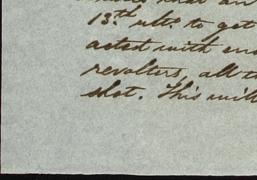 that an
13th ulto. to get
acted with
revolters, all
shot. This will